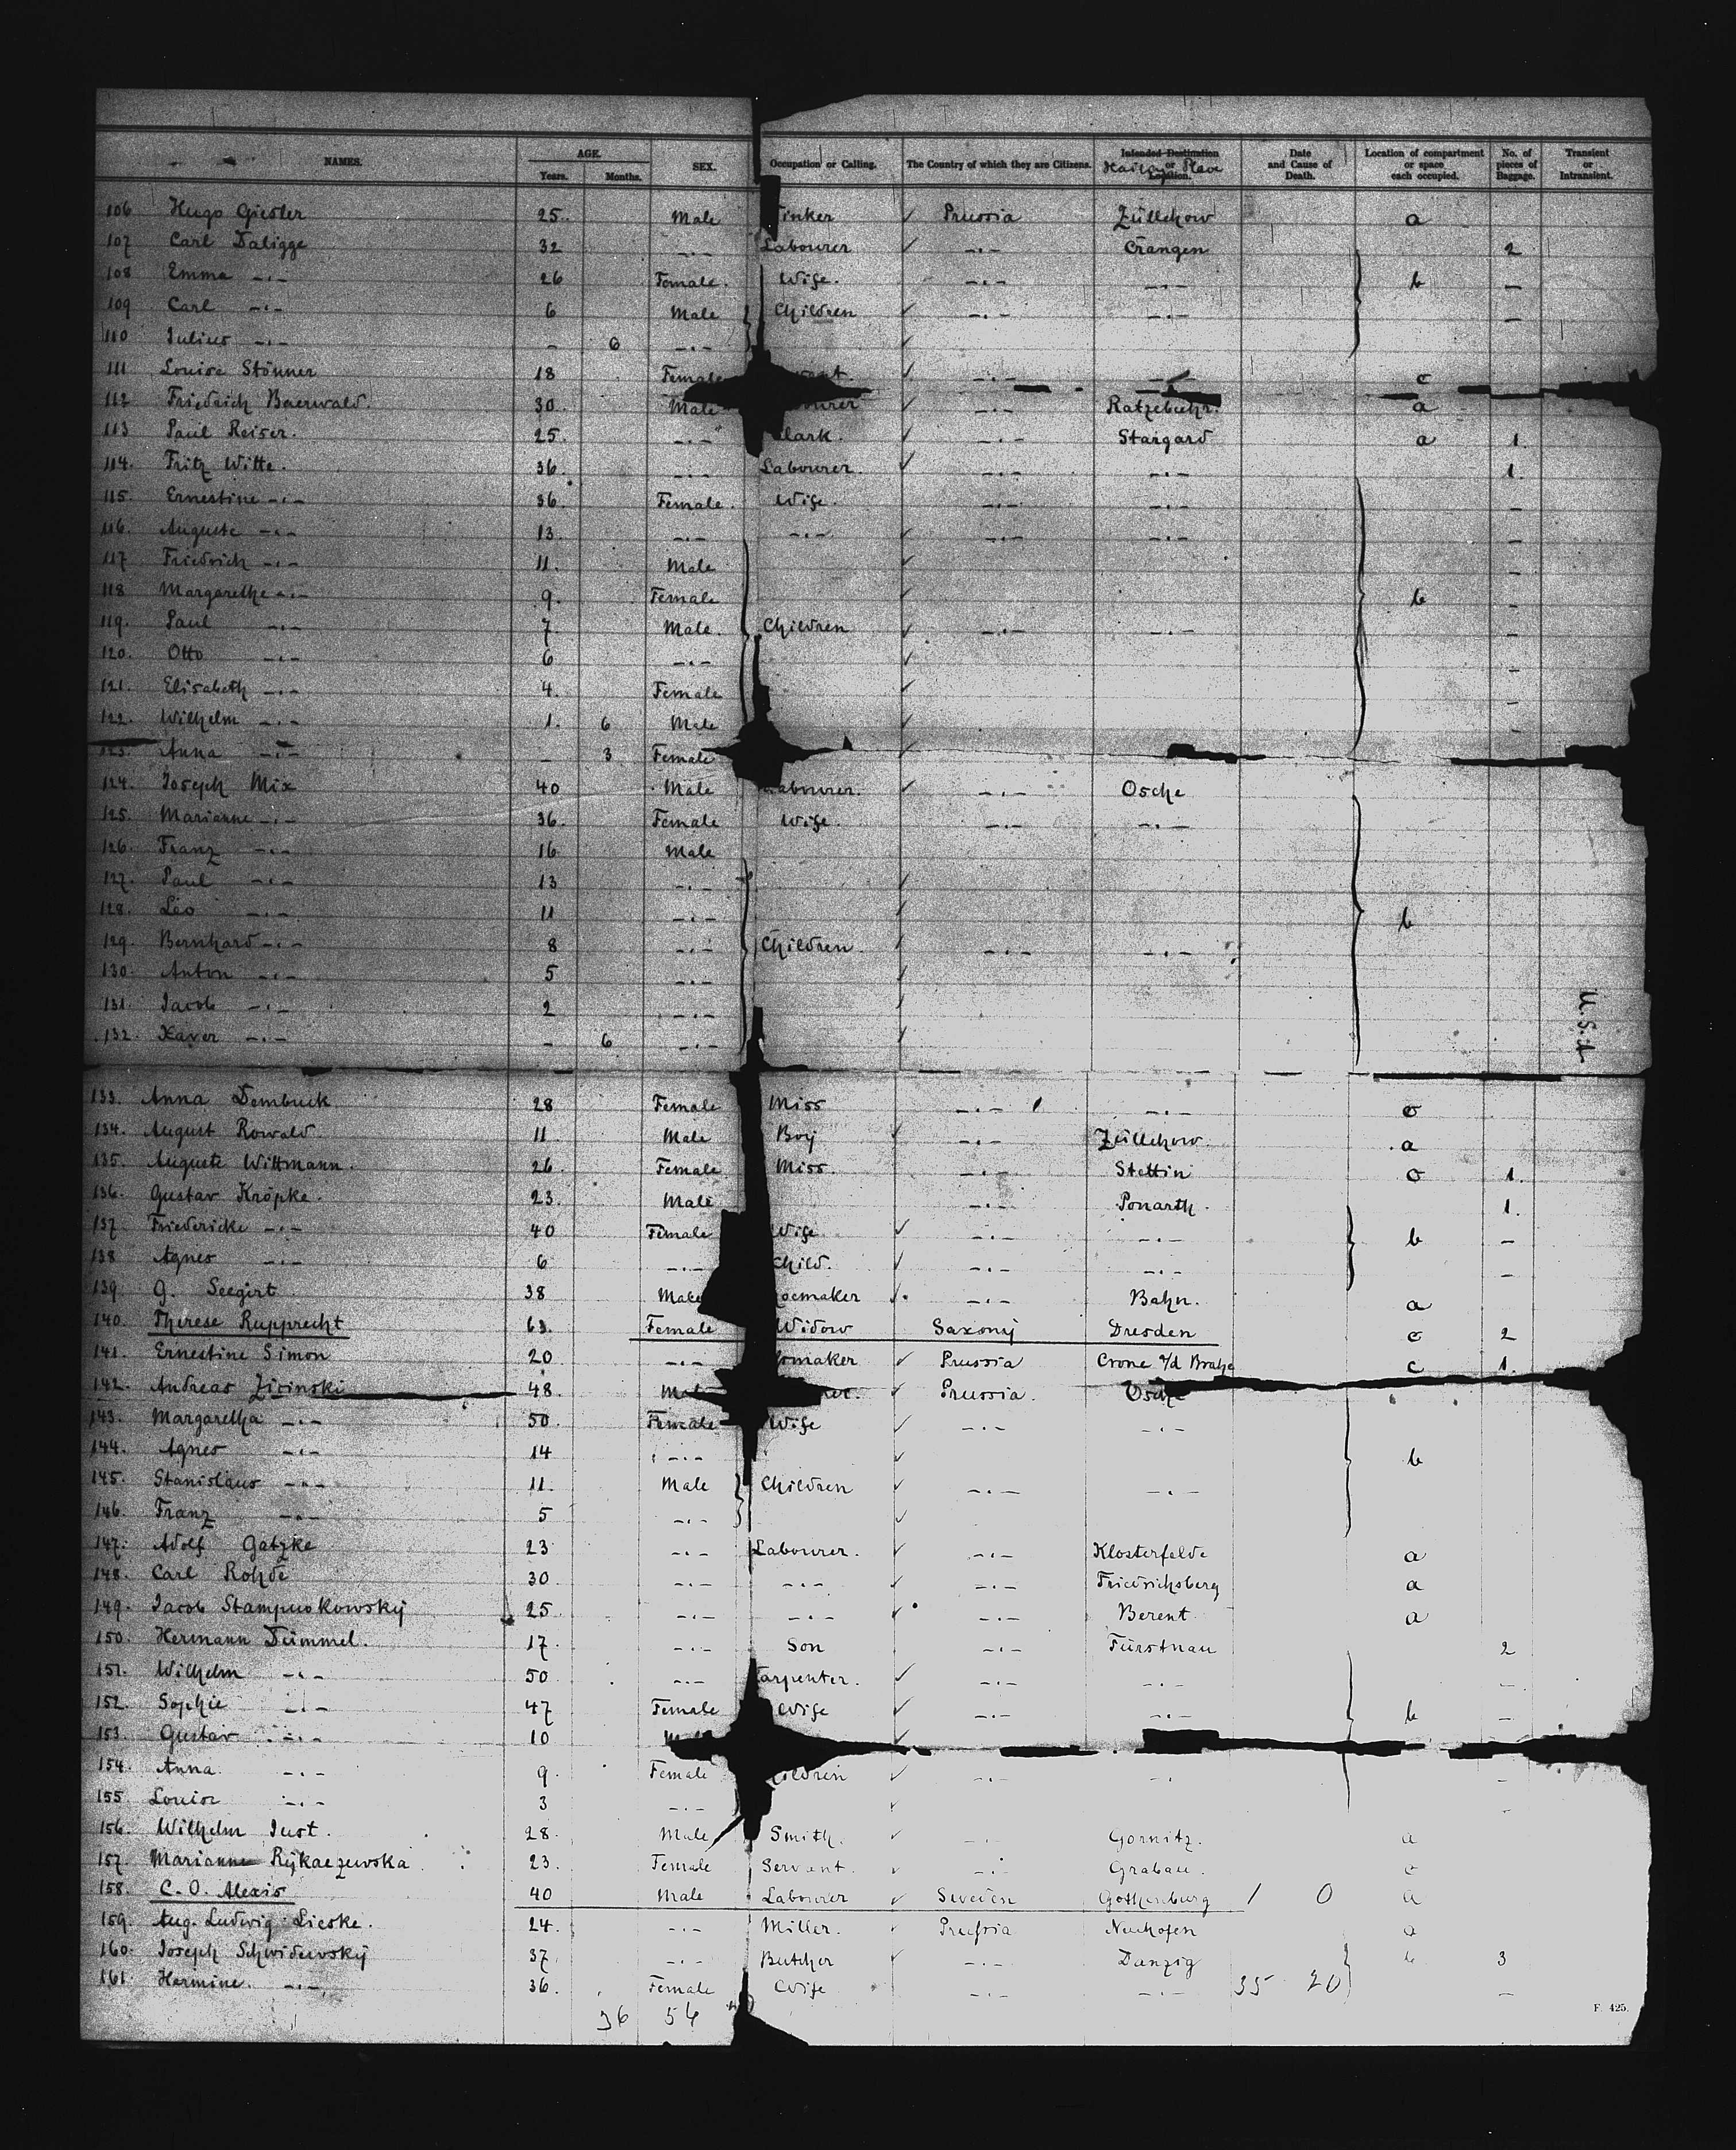 NAMES. AGE. Years. Months. SEX. Occupation or Calling. The Country of which they are Citizens. Intended Destination or Location. Date and Cause of Death. Location of compartment or space each occupied. No. of pieces of Baggage. Transient or Intransient.
106 Hugo Giesler 25. Male Tinker ✓ Prussia Züllchow a
107 Carl Daligge 32 -"- Labourer ✓ -"- Crangen 2
108 Emma -"- 26 Female. Wife. -"- -"- b -
109 Carl -"- 6 Male Children ✓ -"- -"- -
110 Julius -"- - 6 -"- ✓
111 Louise Stönner 18 Female ✓ -"- c
112 Friedrich Baerwald. 30. Male ✓ -"- Ratzebuhr. a
113 Paul Reiser. 25. -"- Clark. ✓ -"- Stargard a 1.
114. Fritz Witte. 36. -"- Labourer. ✓ -"- -"- 1.
115. Ernestine -"- 36. Female. Wife. -"- -"- -
116. Auguste -"- 13. -"- -"- ✓ -"- -"- -
117 Friedrich -"- 11. Male ✓ -
118 Margarethe -"- 9. Female ✓ b -
119. Paul -"- 7. Male. Children ✓ -"- -"- -
120. Otto -"- 6 -"- ✓ -
121. Elisabeth -"- 4. Female ✓ -
122. Wilhelm -"- 1. 6 Male ✓ -
123. Anna -"- - 3 Female ✓
124. Joseph Mix 40 Male Labourer. ✓ -"- Osche
125. Marianne -"- 36. Female Wife. -"- -"-
126. Franz -"- 16 Male
127. Paul -"- 13 -"- ✓
128. Leo -"- 11 -"- ✓ b
129. Bernhard -"- 8 -"- Children ✓ -"- -"-
130. Anton -"- 5 -"- ✓
131. Jacob -"- 2 -"- ✓
132. Xaver -"- - 6 -"- ✓
U.S.A
133. Anna Dembuck 28 Female Miss -"- -"- c
134. August Rowald. 11 Male Boy ✓ -"- Züllchow. a
135. Auguste Wittmann. 26. Female Miss. -"- Stettin c 1.
136. Gustav Kröpke. 23. Male -"- Ponarth. 1.
137 Friedericke -"- 40 Female Wife ✓ -"- -"- b -
138 Agnes -"- 6 -"- Child. ✓ -"- -"- -
139 G. Seegirt 38 Male ✓ -"- Bahn. a
140. Therese Rupprecht 63. Female Widow Saxony Dresden c 2
141. Ernestine Simon 20 -"- ✓ Prussia Crone a/d Brahe c 1.
142. Andreas Zirinski 48. Male ✓ Prussia. Osche
143. Margaretha -"- 50. Female Wife ✓ -"- -"-
144. Agnes -"- 14 -"- ✓ b
145. Stanislaus -"- 11. Male Children ✓ -"- -"-
146. Franz -"- 5 -"- ✓
147. Adolf Gatzke 23 -"- Labourer. ✓ -"- Klosterfelde a
148. Carl Rohde 30 -"- -"- ✓ -"- Friedrichsberg a
149. Jacob Stampuokowsky 25 -"- -"- ✓ -"- Berent a
150. Hermann Dümmel. 17. -"- Son -"- Fürstnau 2
151. Wilhelm -"- 50 -"- Carpenter. ✓ -"- -"- -
152. Sophie -"- 47 Female Wife ✓ -"- -"- b -
153. Gustav -"- 10 ✓
154. Anna -"- 9. Female Children ✓ -"- -
155 Louise -"- 3 -"- ✓ -
156. Wilhelm Just. 28. Male Smith. ✓ -"- Gornitz. a
157. Marianne Rykaczewska 23. Female Servant. ✓ -"- Grabau. c
158. C. O. Alexis 40 Male Labourer ✓ Sweden Gothenburg 1 0 a
159. Aug. Ludwig Lieske. 24. -"- Miller. ✓ Prussia Neuhofen a
160. Joseph Schwidewsky 37. -"- Butcher ✓ -"- Danzig b 3
161. Hermine. -"- 36. Female Wife -"- -"- 35 20 -
36 54
F. 425.